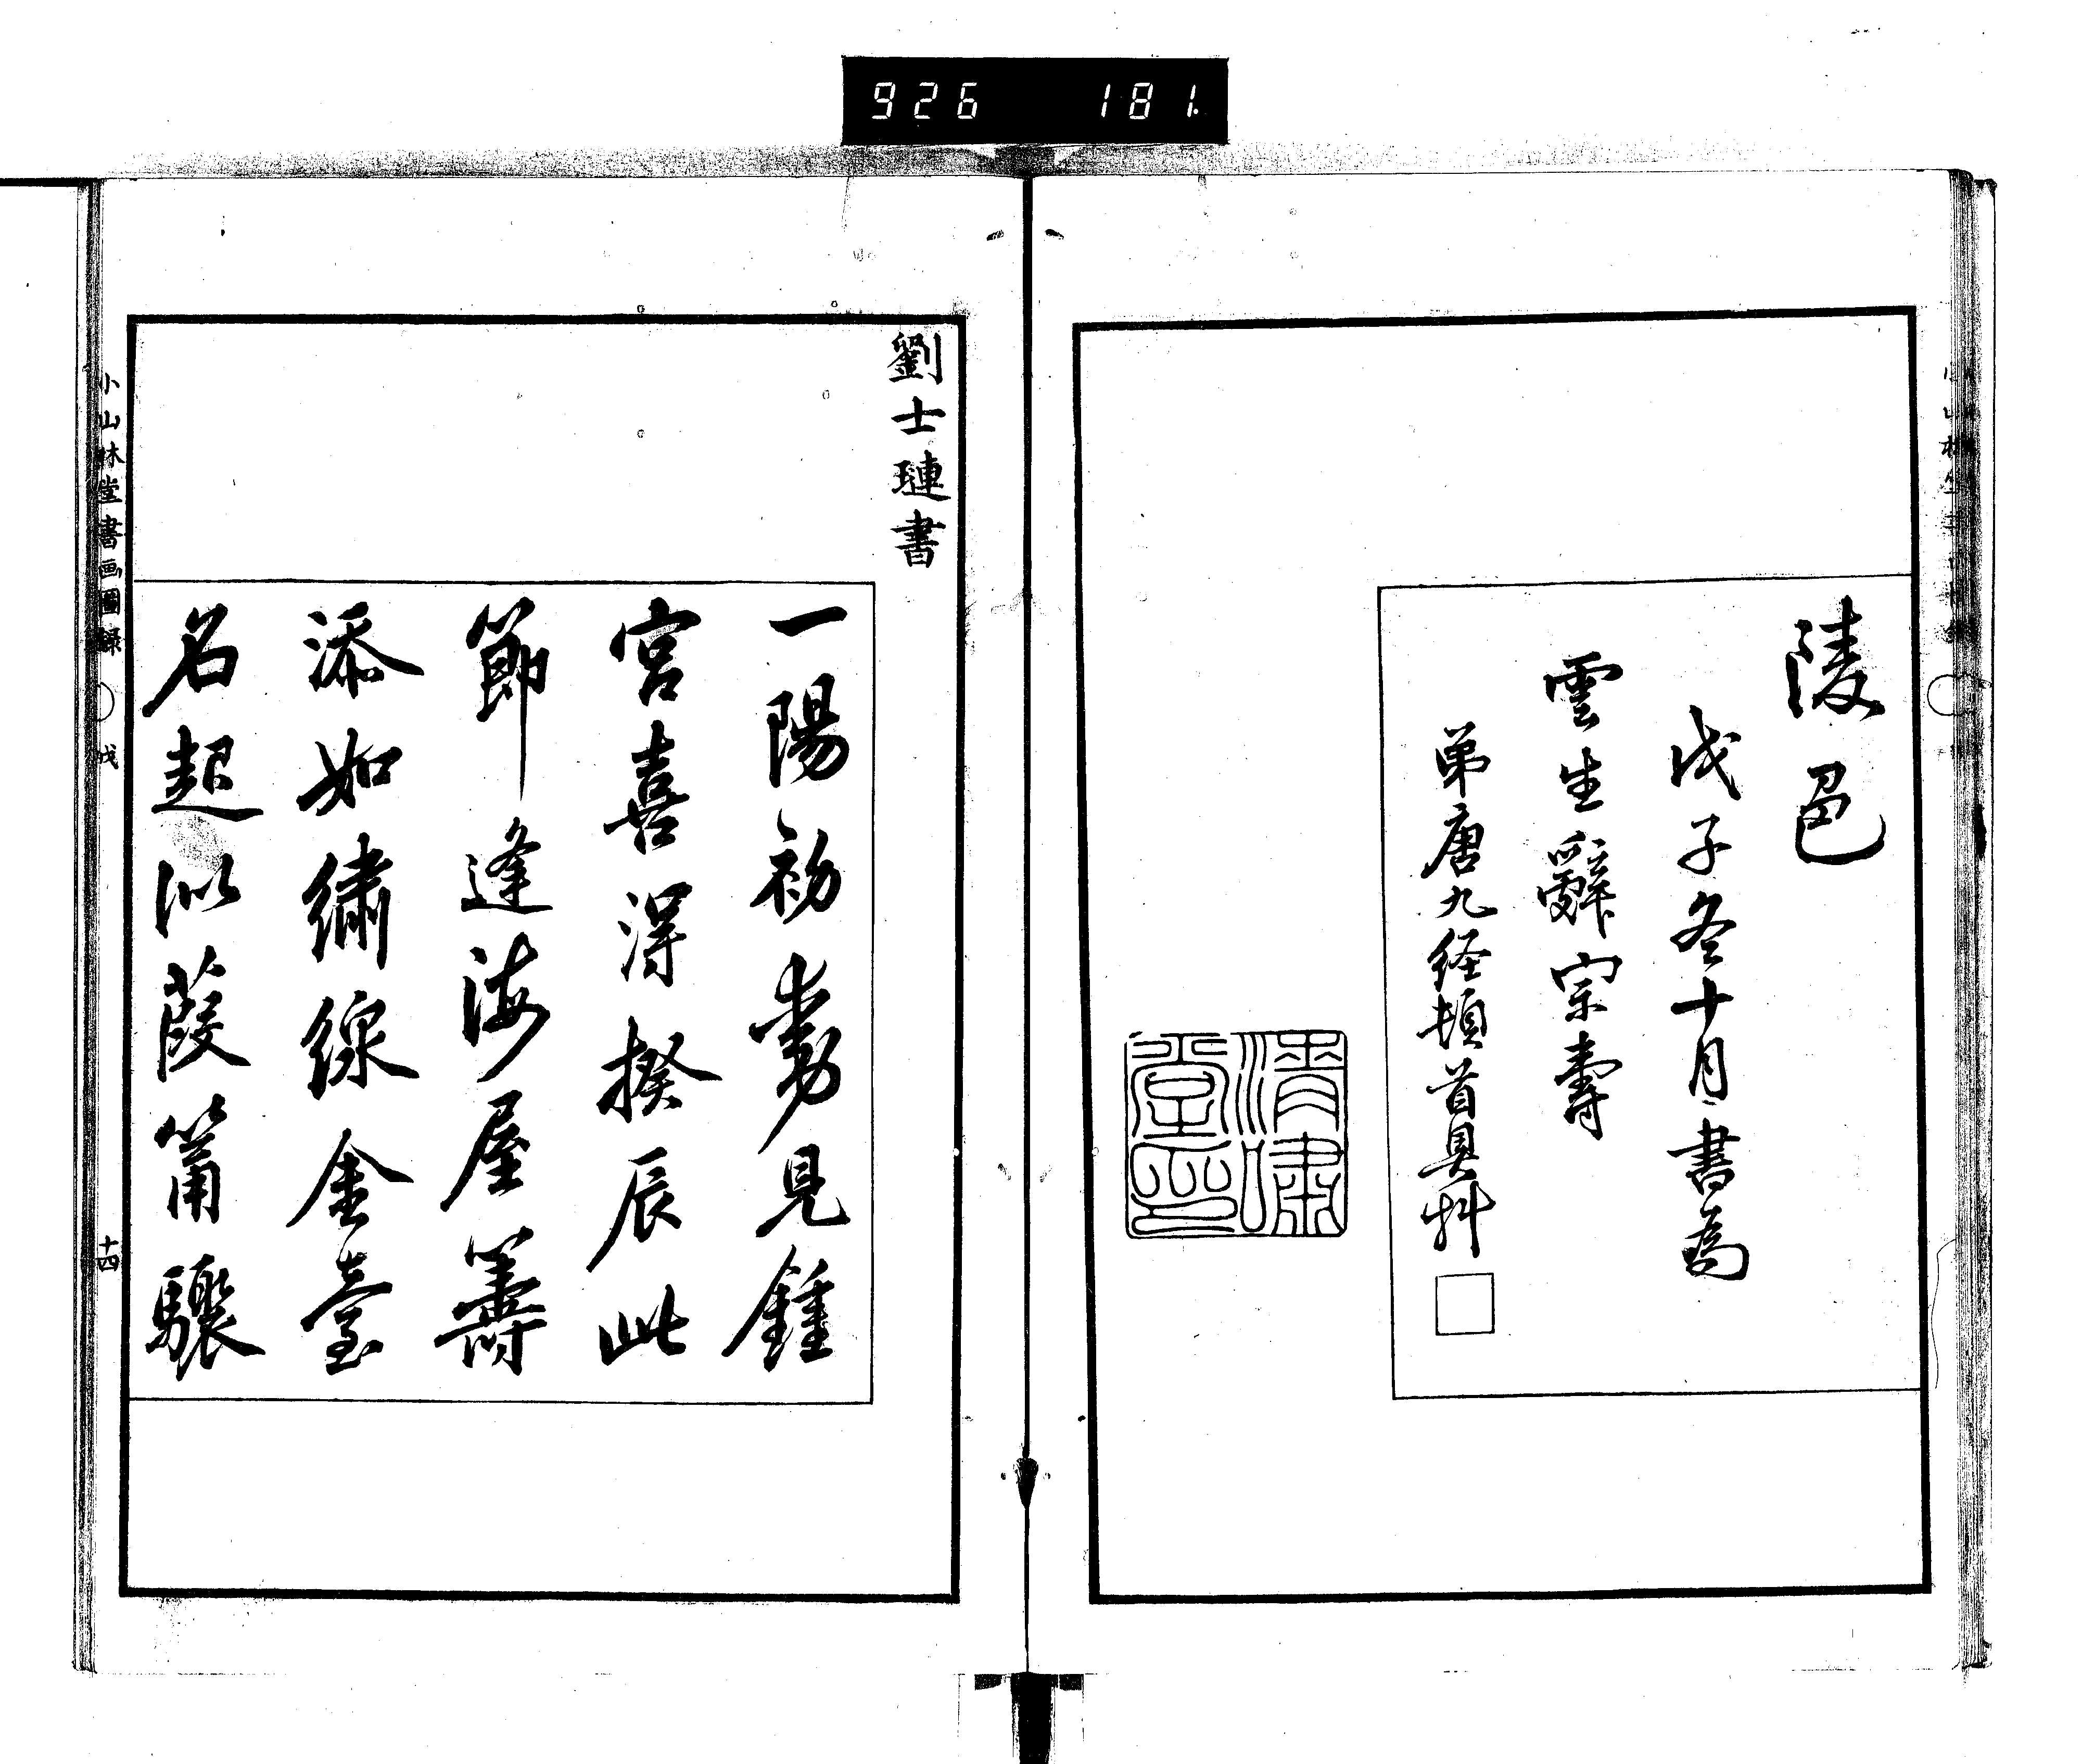 926 181
陵邑
戊子冬十月書為
雲生辭宗壽
弟唐九経頓首具艸
清嘯
堂印
劉士璉書
一陽初動見鍾
宮喜得揆辰此
節逢海屋籌
添如繡線金臺
名起似葭莆驥
小山林堂書画圖録 戌 十四